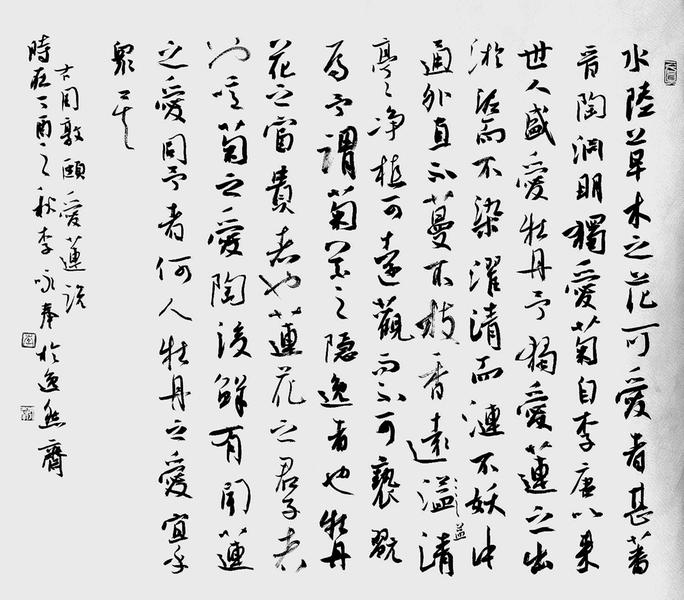 水陸草木之花可愛者甚蕃
晉陶淵明獨愛菊自李唐以來
世人盛愛牡丹予獨愛蓮之出
淤泥而不染濯清而漣不妖中
通外直不蔓不枝香遠溢清
益
亭々净植可遠觀而不可褻翫
焉予謂菊花之隱逸者也牡丹
花之富貴者也蓮花之君子者
也噫菊之愛陶後鮮有聞蓮
之愛同予者何人牡丹之愛宜乎
眾矣
古周敦頤愛蓮説
時在丁酉之秋李咏於逸然齋